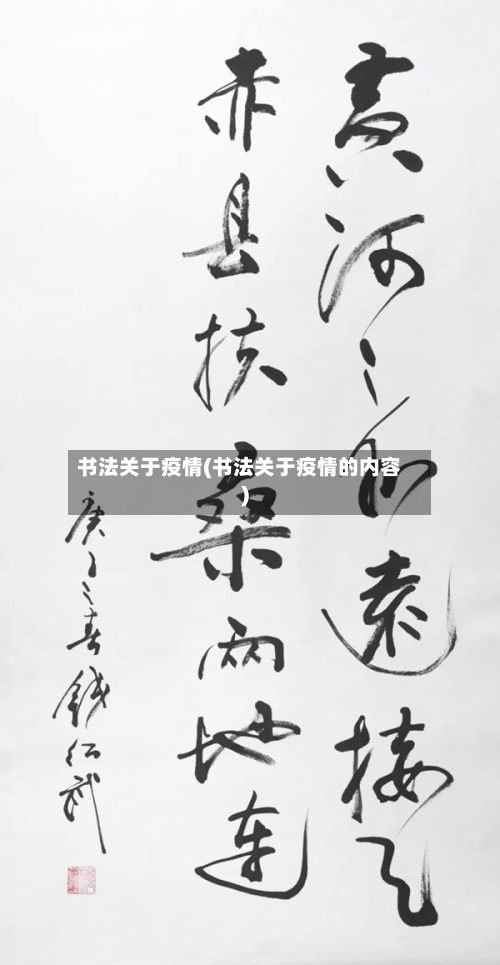 黄河之水遠接天
赤县扶桑两地連
庚子之春錢紹武
书法关于疫情(书法关于疫情的内容
)